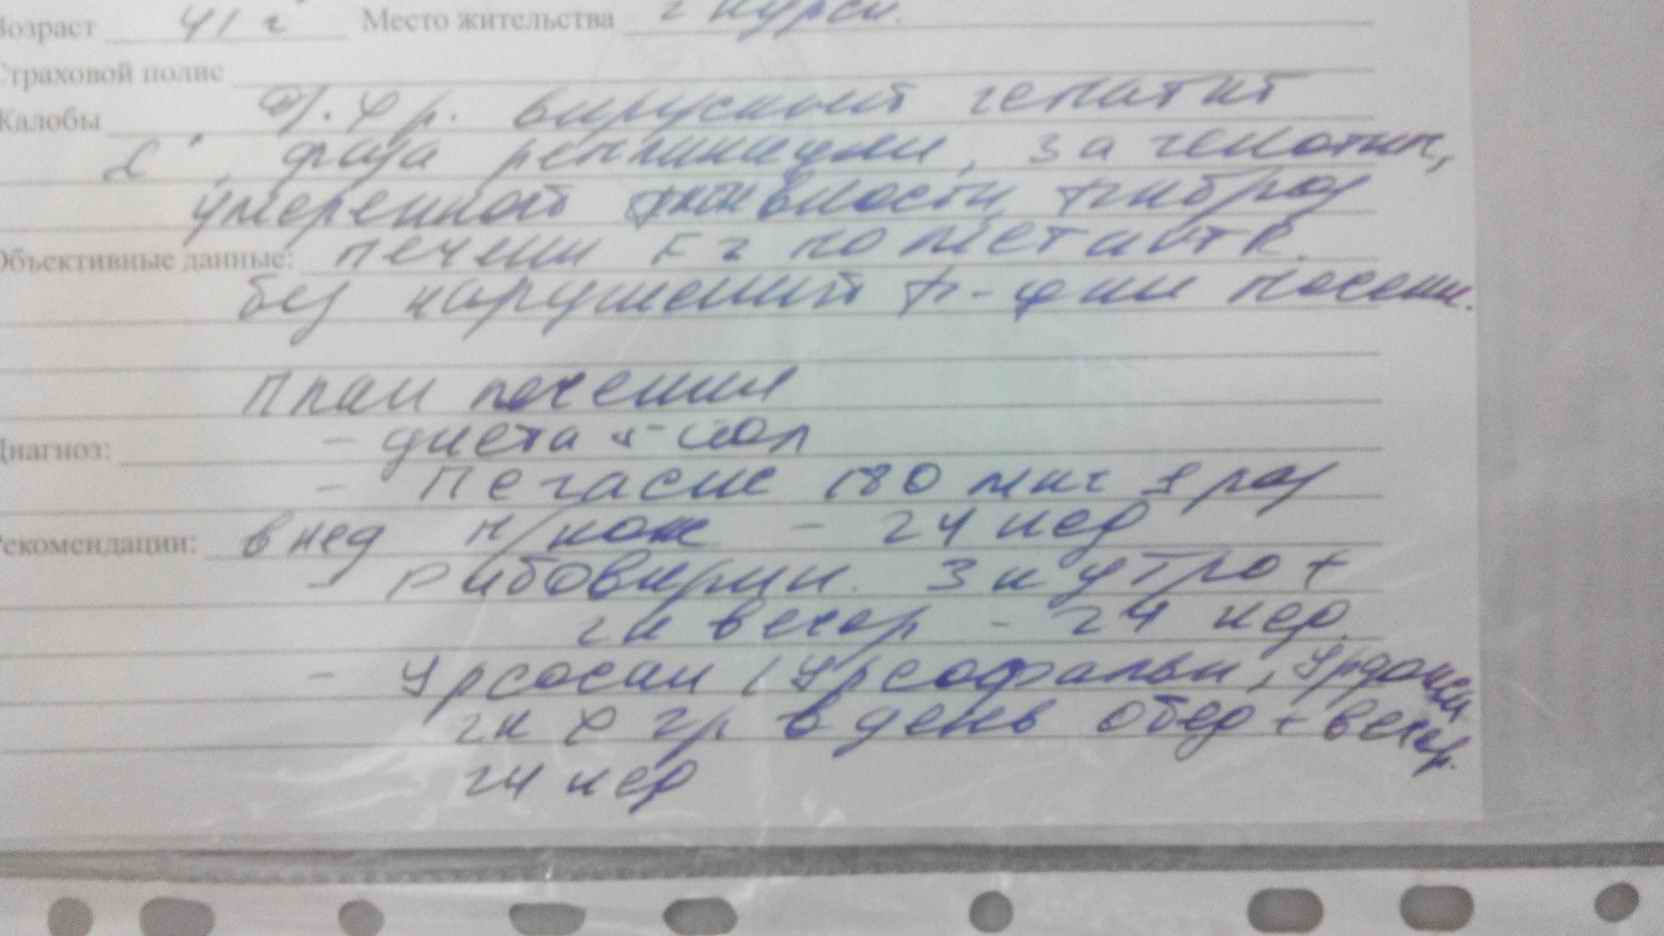 Возраст 41 г Место жительства г Курск.
Страховой полис
Жалобы Д/. Хр. вирусный гепатит
С, фаза репликации, 3а генотип,
умеренной активности, фиброз
Объективные данные: печени F2 по МЕТАVIR.
без нарушений ф-ции печени.
План лечения
Диагноз: - диета 5 стол
- Пегасис 180 мкг 1 раз
Рекомендации: в нед п/кож - 24 нед
- Рибавирин. 3 к утро +
2к вечер - 24 нед.
- Урсосан (Урсофальк, Урдокса
2к х 2р в день обед + вечер.
24 нед